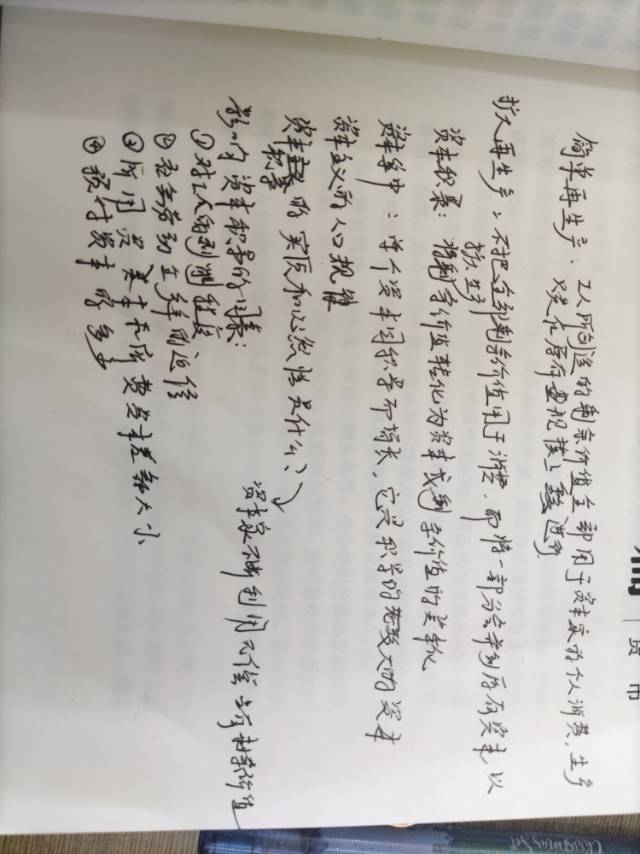 简单再生产：工人所创造的剩余价值全部用于资本家的个人消费，生产
只是在原有规模上重复进行
扩大再生产：不把全部剩余价值用于消费，而将一部分合并到原有资本以
扩大生产
资本积累：将剩余价值转化为资本或剩余价值的资本化
资本集中：单个资本因积累而增长，它是积累的
资本主义的人口规律
资本积累的实质和必然性是什么？
资本家不断利用无偿占有剩余价值
影响资本积累的因素：
①对工人的剥削程度
②社会劳动生产率的
③所用资本和所费资本差额大小
④预付资本的多少
货币